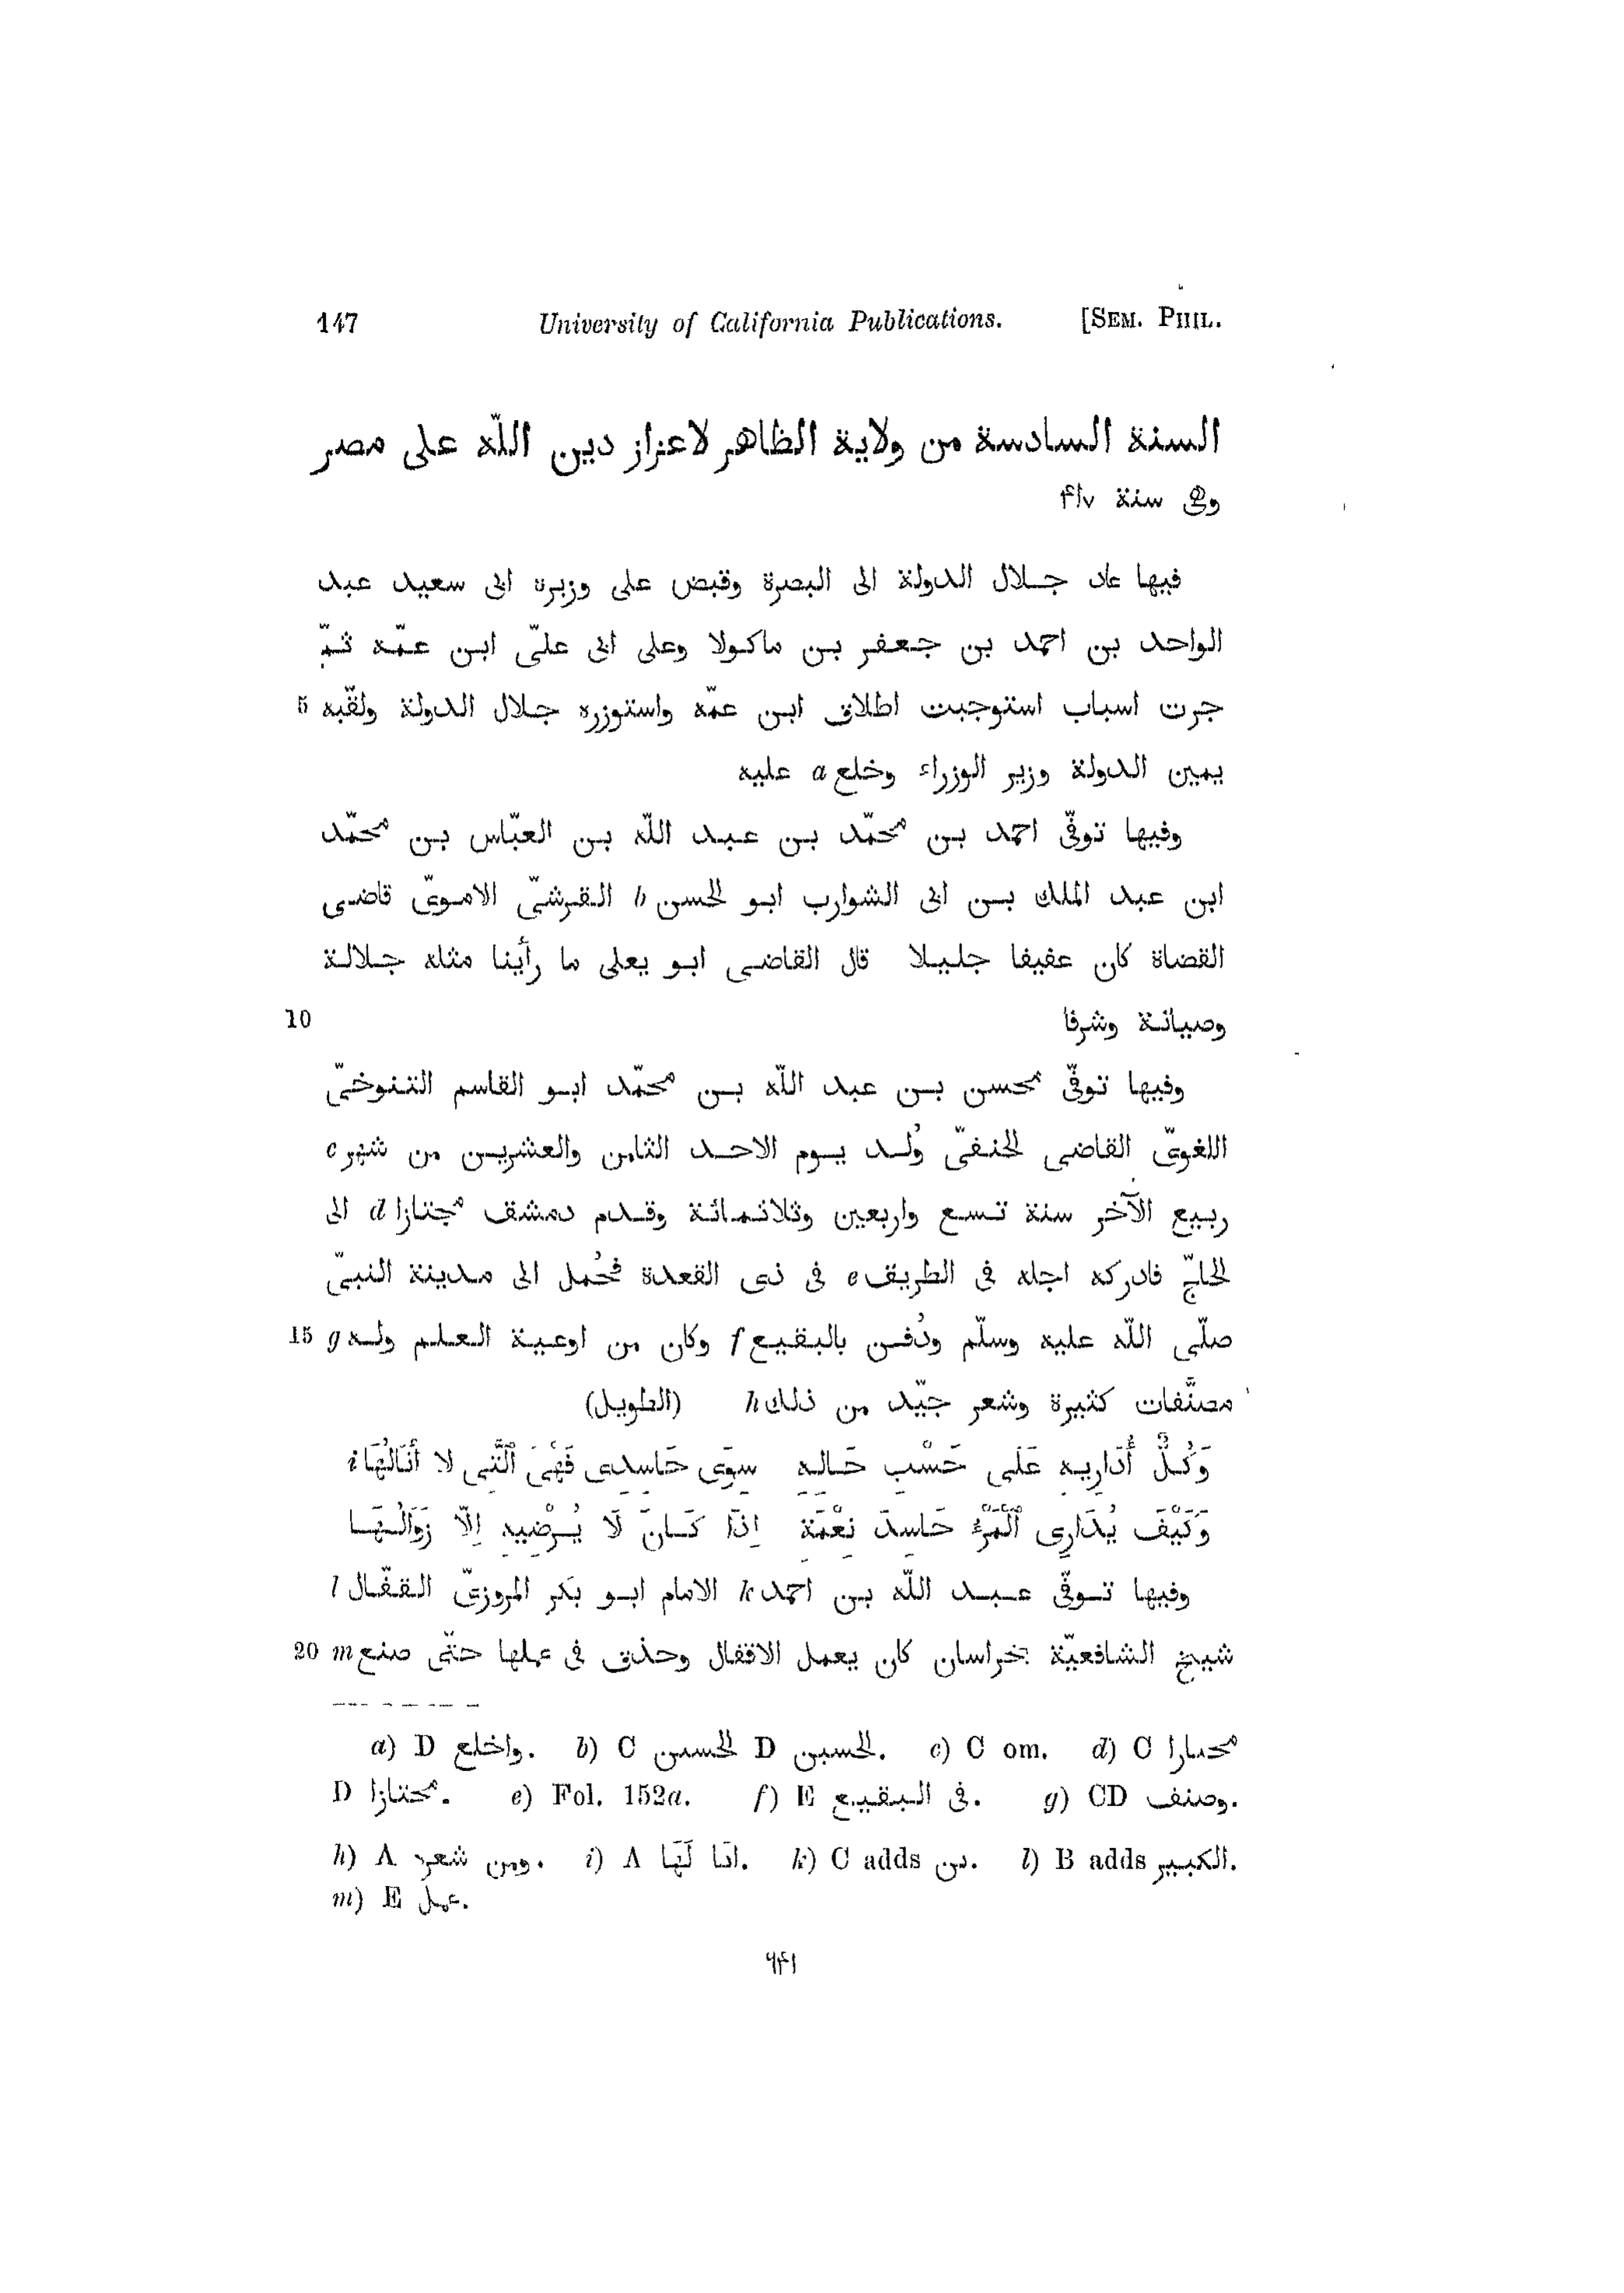 147 University of California Publications. [SEM. PHIL.
السنة السادسة من ولاية الظاهر لاعزاز دين اللّه على مصر
وهى سنة ۴۱۷
فيها عاد جلال الدولة الى البصرة وقبض على وزيره ابى سعيد عبد
الواحد بن احمد بن جعفر بن ماكولا وعلى ابى علىّ ابن عمّه ثمّ
جرت اسباب استوجبت اطلاق ابن عمّه واستوزره جلال الدولة ولقّبه 5
يمين الدولة وزير الوزراء وخلع a عليه
وفيها توفّى احمد بن محمّد بن عبد اللّه بن العبّاس بن محمّد
ابن عبد الملك بن ابى الشوارب ابو الحسن b القرشىّ الاموىّ قاضى
القضاة كان عفيفا جليلا قال القاضى ابو يعلى ما رأينا مثله جلالة
وصيانة وشرفا 10
وفيها توفّى محسن بن عبد اللّه بن محمّد ابو القاسم التنوخىّ
اللغوىّ القاضى الحنفىّ وُلد يوم الاحد الثامن والعشرين من شهر c
ربيع الآخر سنة تسع واربعين وثلاثمائة وقدم دمشق مجتازا d الى
الحاجّ فادركه اجله فى الطريق e فى ذى القعدة فحُمل الى مدينة النبىّ
صلّى اللّه عليه وسلّم ودُفن بالبقيع f وكان من اوعية العلم وله g 15
مصنَّفات كثيرة وشعر جيّد من ذلك h (الطويل)
وَكُلٌّ أُدَارِيهِ عَلَى حَسْبِ حَالِهِ سِوَى حَاسِدِى فَهْىَ ٱلَّتِى لا أَنَالُهَا i
وَكَيْفَ يُدَارِى ٱلْمَرْءُ حَاسِدَ نِعْمَةٍ إِذَا كَانَ لَا يُرْضِيهِ إِلّا زَوَالُهَا
وفيها توفّى عبد اللّه بن احمد k الامام ابو بكر المروزىّ القفّال l
شيخ الشافعيّة بخراسان كان يعمل الاقفال وحذق فى عملها حتّى صنع m 20
a) D واخلع. b) C الحسين D الحسين. c) C om. d) C محسارا
D محتازا. e) Fol. 152a. f) E فى البقيع. g) CD وصنف.
h) A ومن شعره. i) A انا لَهَا. k) C adds بن. l) B adds الكبير.
m) E عمل.
۹۴۱